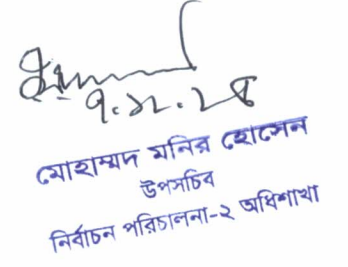 মোহাম্মদ মনির হোসেন
উপসচিব
নির্বাচন পরিচালনা-২ অধিশাখা